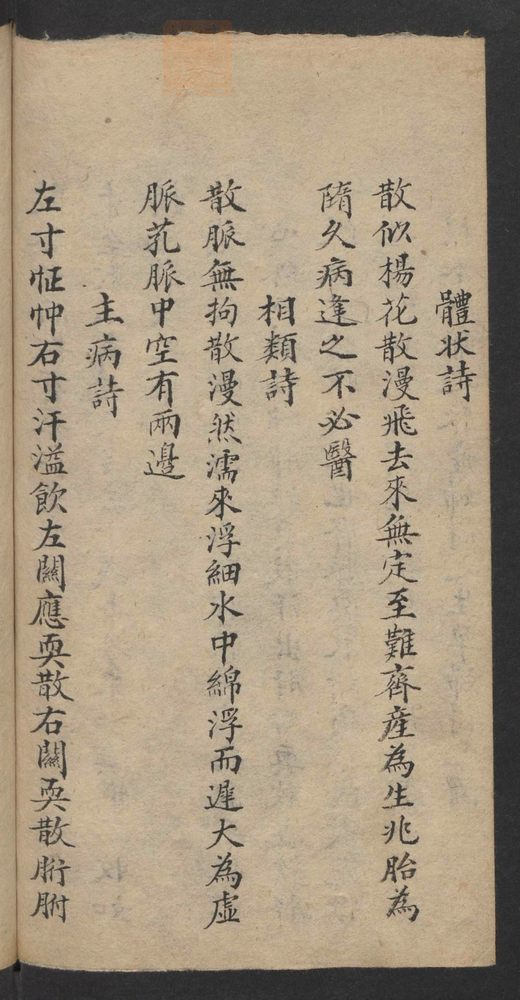 體状詩
散似楊花散漫飛去來無定至難齊產為生兆胎為
隋久病逢之不必醫
相類詩
散脈無拘散漫然濡來浮細水中綿浮而遲大為虛
脈芤脈中空有兩邊
主病詩
左寸怔忡右寸汗溢飲左關應耎散右關耎散胻胕